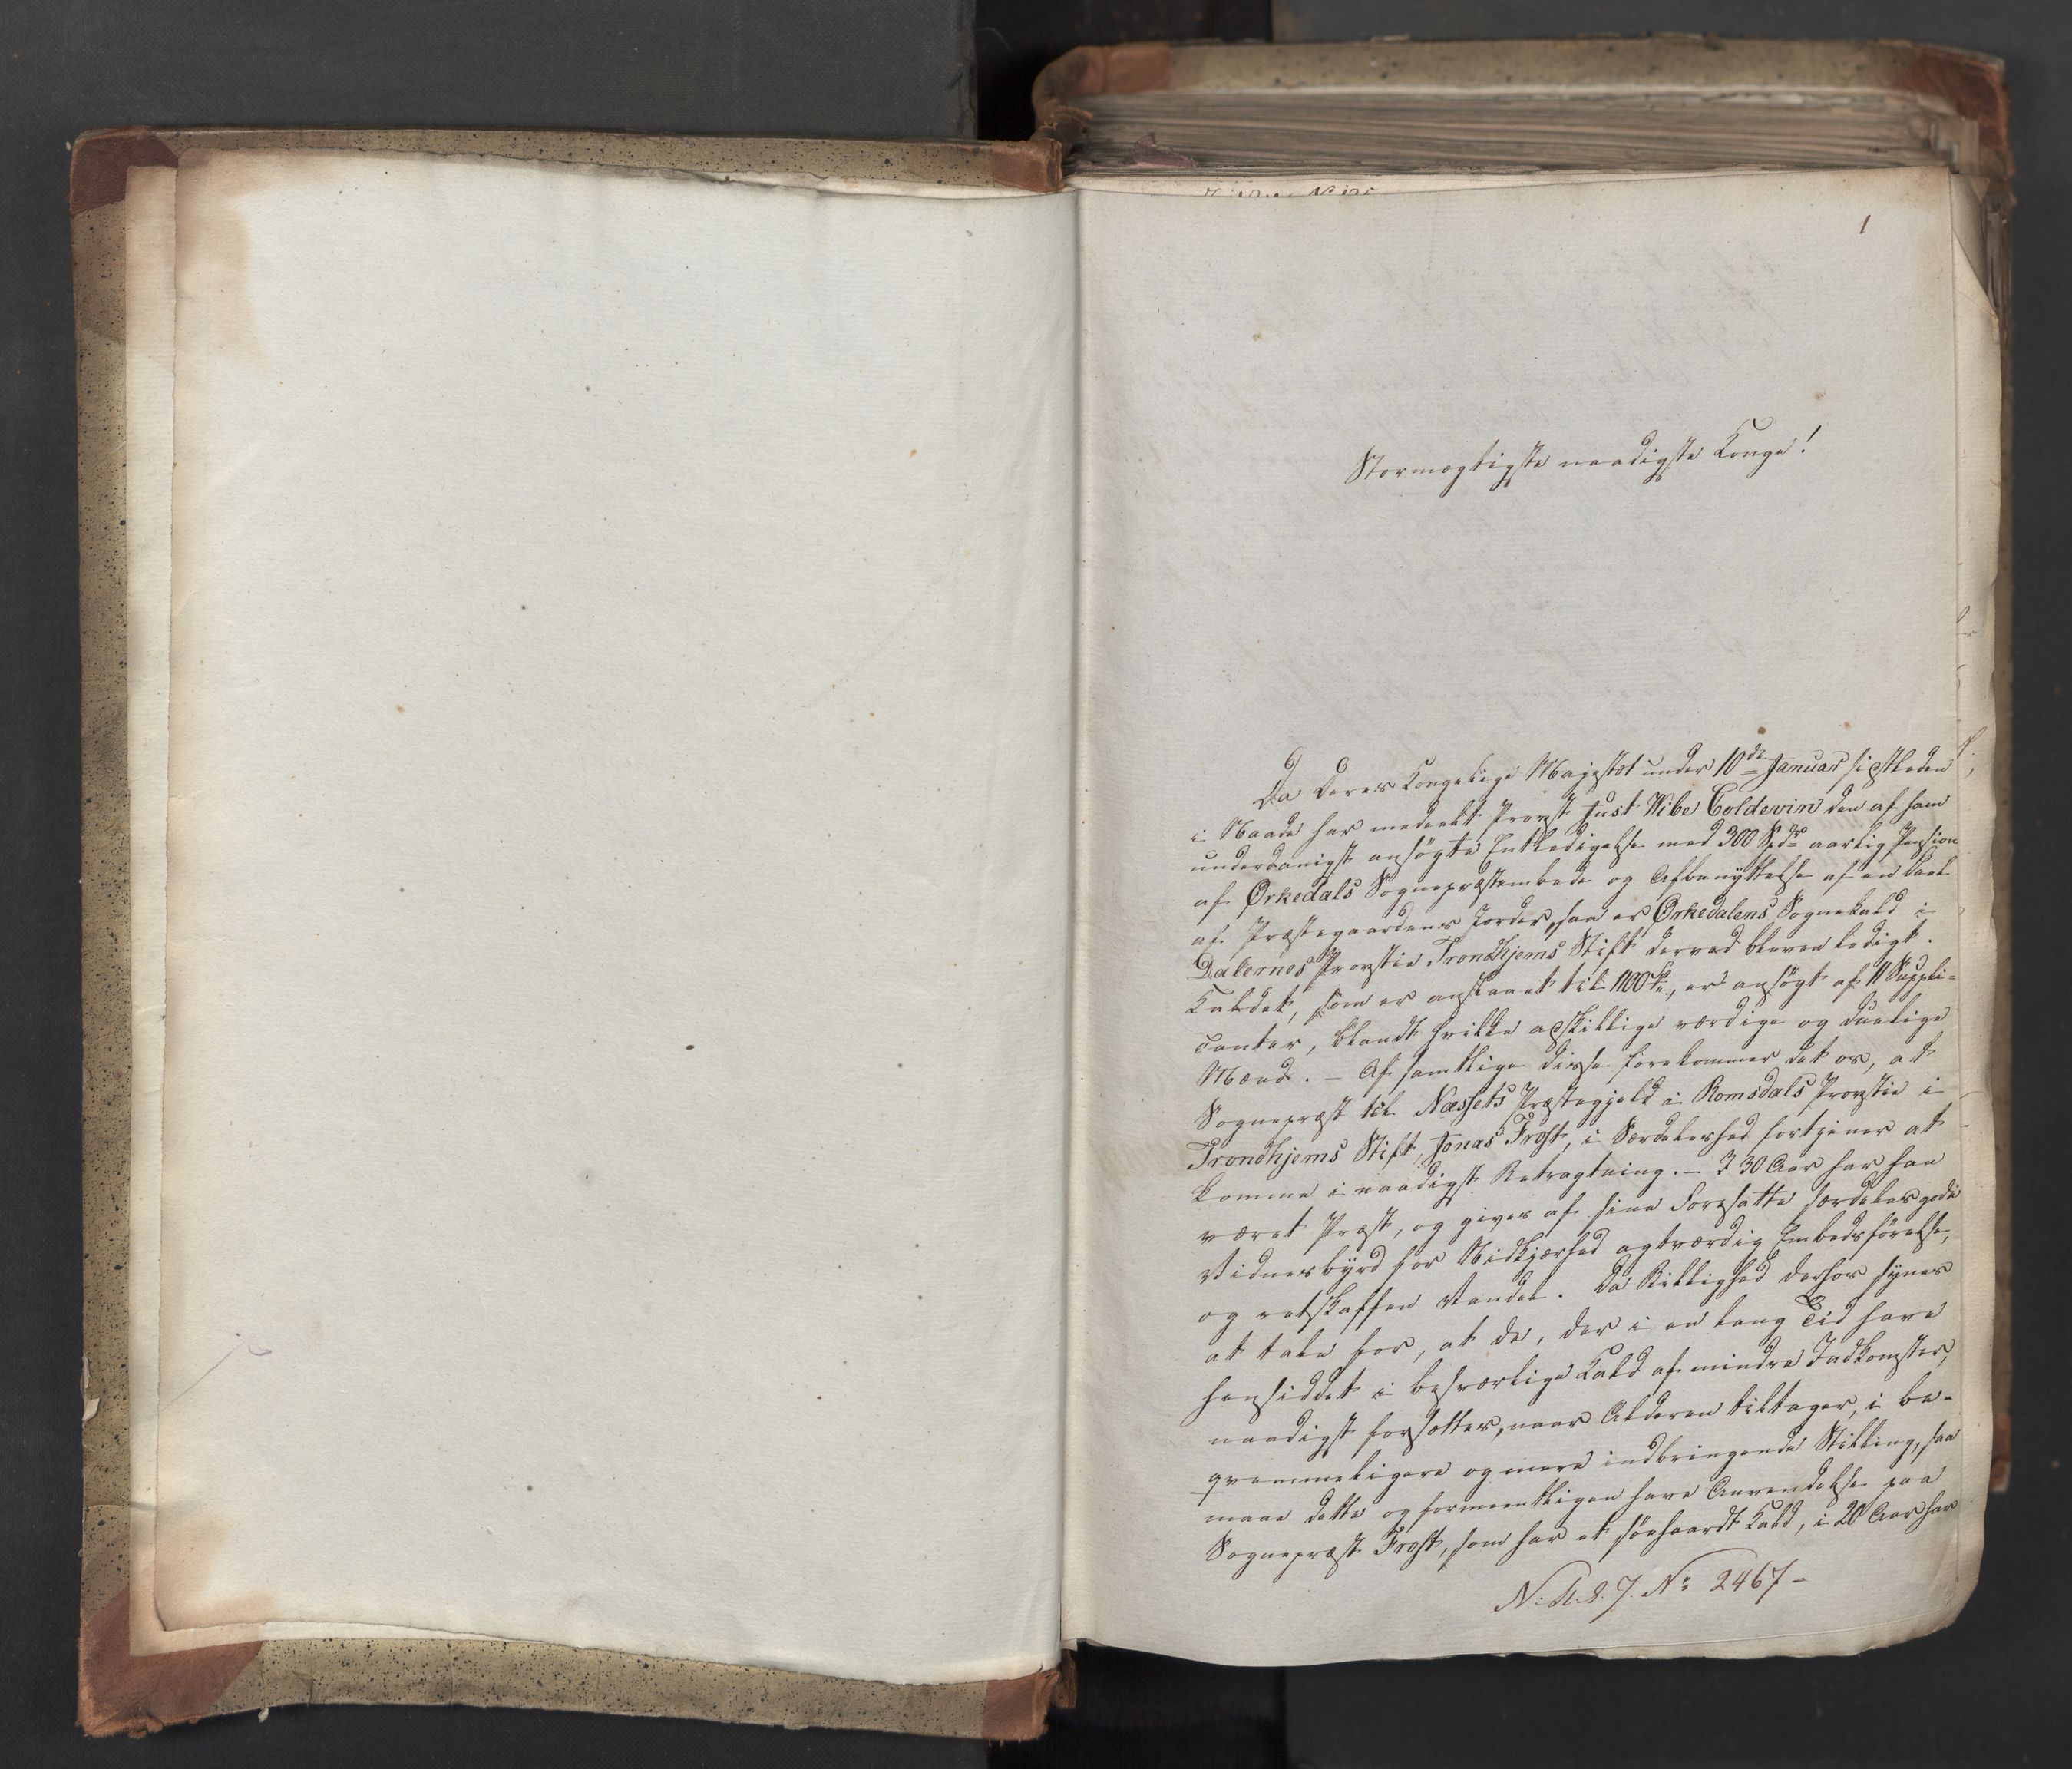 1
Stormægtigste naadigste Konge!
Da Deres Kongelige Majestæt under 10de Januar sidstleden
i Naade har meddeelt Provst Just Wibe Coldevin den af ham
underdanigst ansøgte Entledigelse med 300 Spdr aarlig Pension
af Ørkedals Sognepræstembede og Afbenyttelse af en Deel
af Præstegaardens Jorder, saa er Ørkedalens Sognekald i
Dalernes Provstie Trondhjems Stift derved bleven ledigt.
Kaldet, som er anslaaet til 1100, er ansøgt af 11 Suppli-
canter, blandt hvilke adskillige værdige og duelige
Mænd. - Af samtlige disse forekommer det os, at
Sognepræst til Næssets Præstegjeld i Romsdals Provstie i
Trondhjems Stift, Jonas Frost, i Særdeleshed fortjener at
komme i naadigst Betragtning. - I 30 Aar har han
været Præst, og gives af sine Foresatte særdeles gode
Vidnesbyrd for Nidkjærhed agtværdig Embedsførelse,
og retskaffen Vandel. Da Billighed derhos synes
at tale for, at de, der i en lang Tid have
hensiddet i besværlige Kald af mindre Indkomster,
naadigst forsættes, naar Alderen tiltager, i be-
qvemmeligere og mere indbringende Stilling, saa
maae dette og formeentligen have Anvendelse paa
Sognepræst Frost, som har et søehaardt Kald, i 20 Aar har
No 2467-